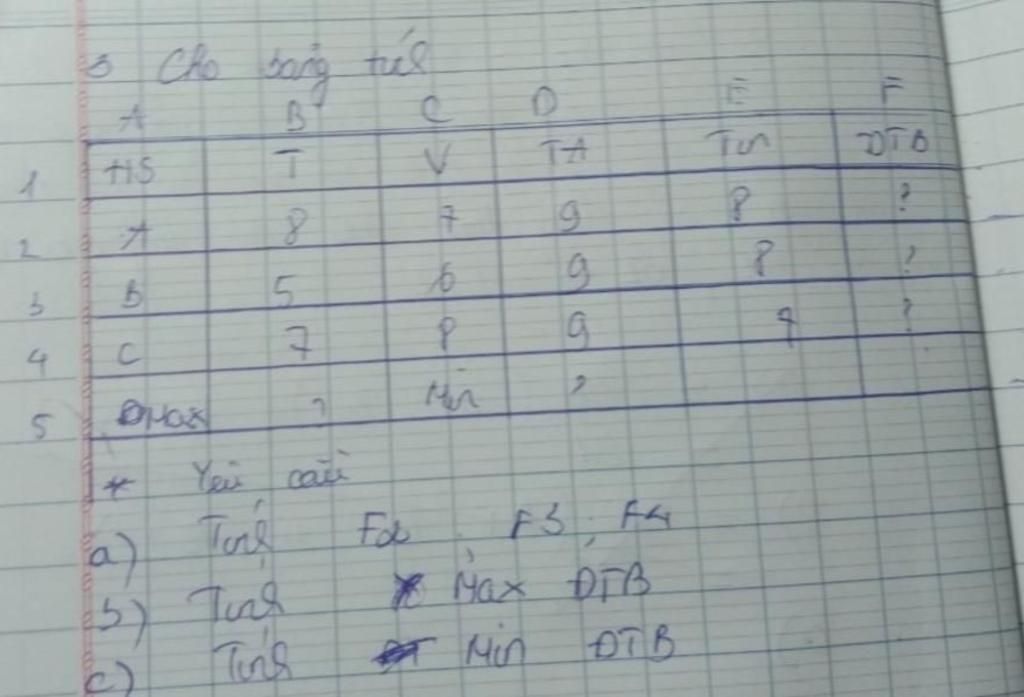 3 Cho bảng tính
A B C D E F
1 HS T V TA Tin ĐTB
2 A 8 7 9 8 ?
3 B 5 6 9 8 ?
4 C 7 8 9 ?
5 Max ? Min ?
* Yêu cầu
a) Tính F2, F3, F4
b) Tính Max ĐTB
c) Tính Min ĐTB